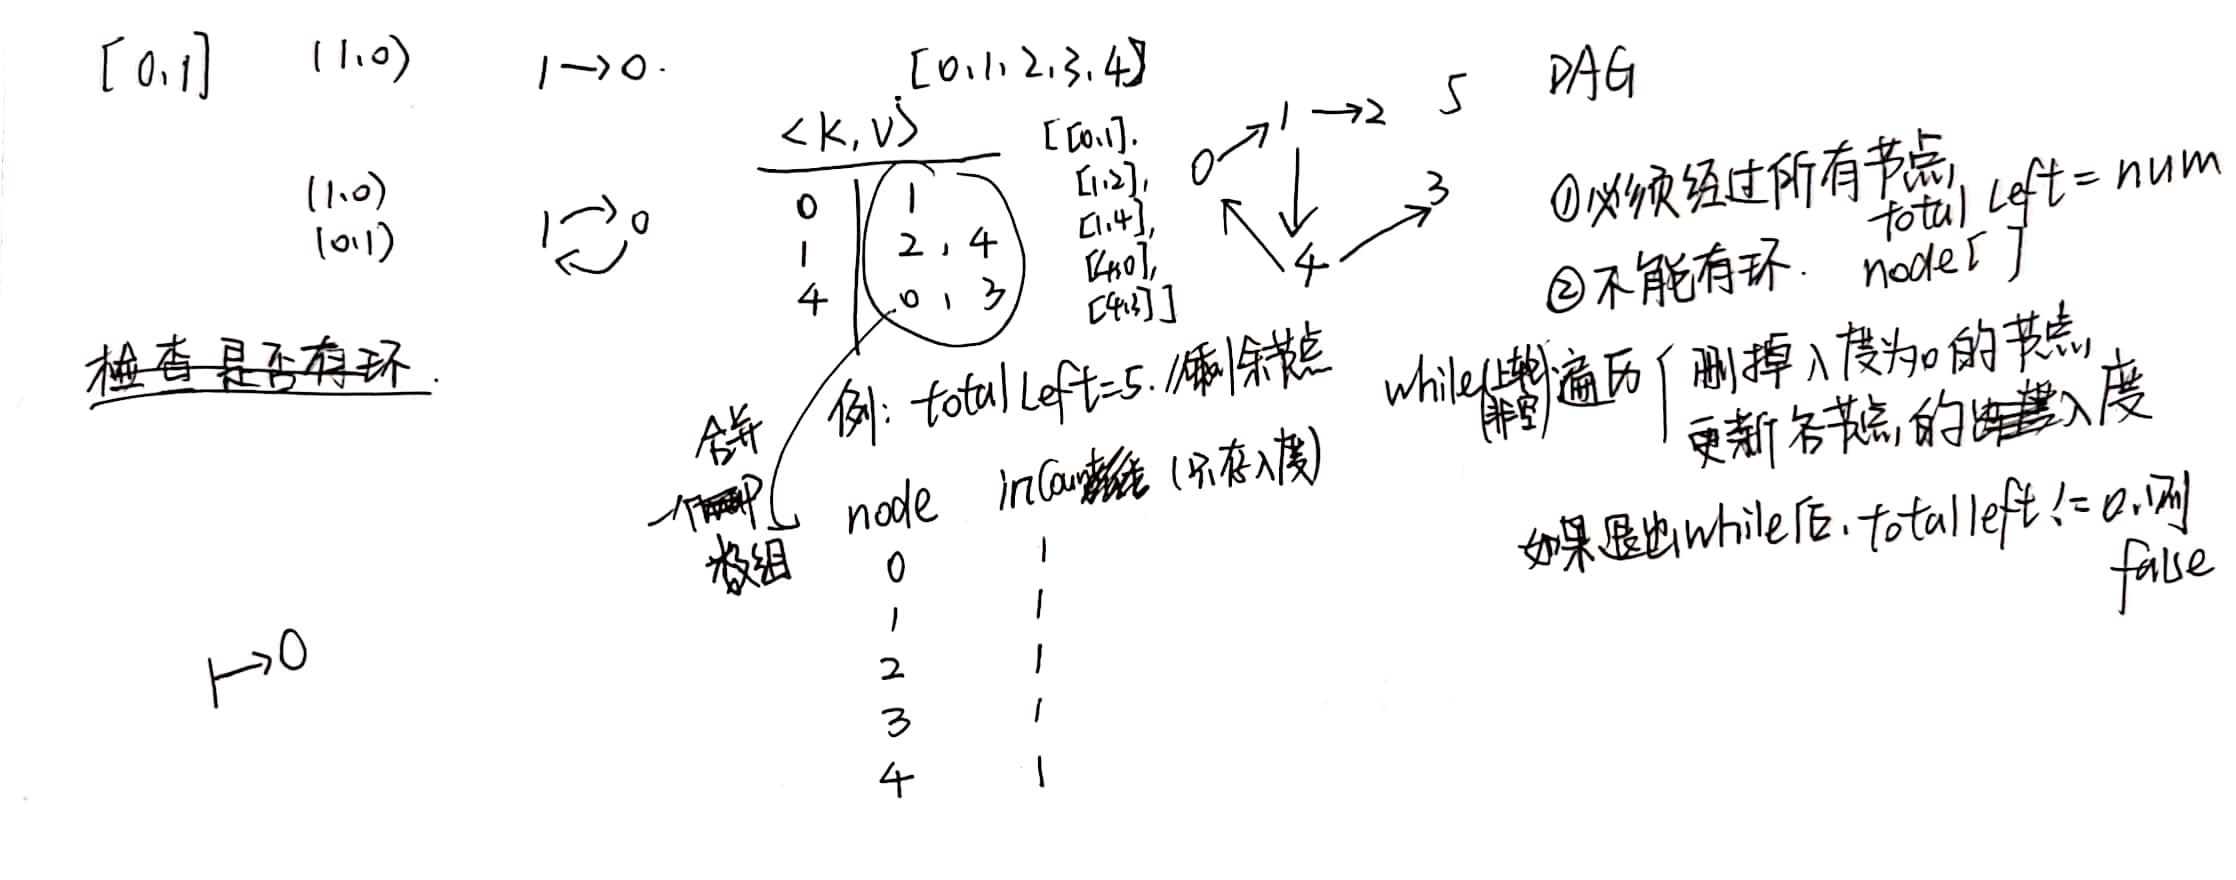 [0,1]
(1,0)
1→0.
(1,0)
(0,1)
1 0
检查是否有环.
1→0
[0,1,2,3,4]
<K,V>
0 1
1 2,4
4 0,3
[[0,1],
[1,2],
[1,4],
[4,0],
[4,3]]
0 1→2
4 3
5
例: total left=5. //剩余节点
合并
一个
数组
node inCount (只存入度)
0 1
1 1
2 1
3 1
4 1
DAG
①必须经过所有节点,
total left = num
②不能有环. node[]
while(上轮非空)遍历
删掉入度为0的节点,
更新各节点的入度
如果退出while后, total left != 0,则
false